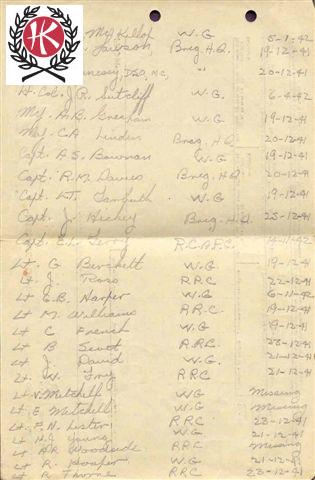 HK
McKillop W.G 5-1-42
Lawson Brig. H.Q. 19-12-41
Hennessy, DSO, MC, " 20-12-41
Lt. Col. J.R. Sutcliff W.G. 6-4-42
Mj. A.B. Gresham W.G 19-12-41
Maj. C.A Lindon Brig. H.Q 20-12-41
Capt. A.S. Bowman W.G 19-12-41
Capt. R.M. Davies Brig. H.Q 20-12-41
Capt. L.T. W.G 19-12-41
Capt. J. Hickey Brig. H.Q. 25-12-41
Capt. E.L. Terry R.C.A.P.C. 42
Lt. G Birchett W.G 19-12-41
Lt. J. Ross R.R.C 22-12-41
Lt E.B. Harper W.G 6-11-42
Lt M. Williams R.R.C. 19-12-41
Lt C French W.G 19-12-41
Lt B Scott R.R.C. 23-12-41
Lt. J. David W.G. 21-12-41
Lt. W. Fry R.R.C 21-12-41
Lt V. Mitchell W.G Missing
Lt E. Mitchell W.G Missing
Lt. F.N. Lister R.R.C 23-12-41
Lt H.J. Young W.G 21-12-41
Lt A.R Woodside RRC Missing
Lt R. Hooper W.G 21-12-41
Lt R. Thorne RRC 23-12-41